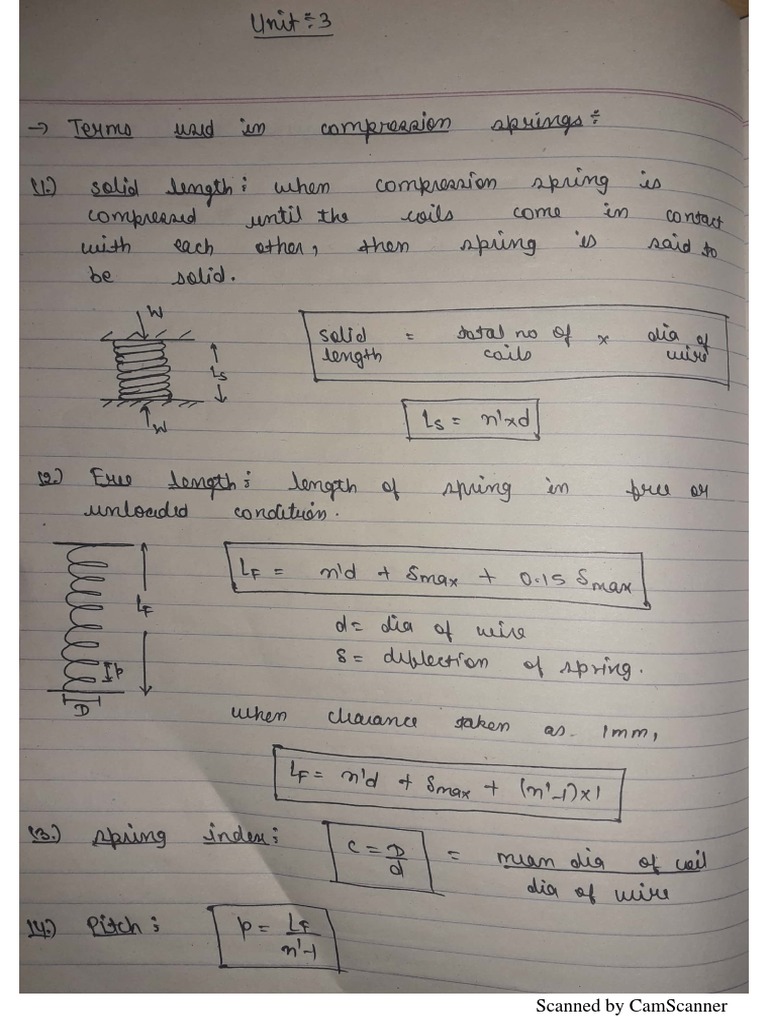 Unit:-3
→ Terms used in compression springs:-
(1.) solid length: when compression spring is
compressed until the coils come in contact
with each other, then spring is said to
be solid.
W
Ls
W
solid length = total no of coils × dia of wire
Ls = n'×d
(2.) Free length: length of spring in free or
unloaded condition.
LF
p
D
LF = n'd + δmax + 0.15 δmax
d = dia of wire
δ = deflection of spring.
when clearance taken as 1mm,
LF = n'd + δmax + (n'-1)×1
(3.) spring index: C = D/d = mean dia of coil / dia of wire
(4.) Pitch: p = LF / n'-1
Scanned by CamScanner